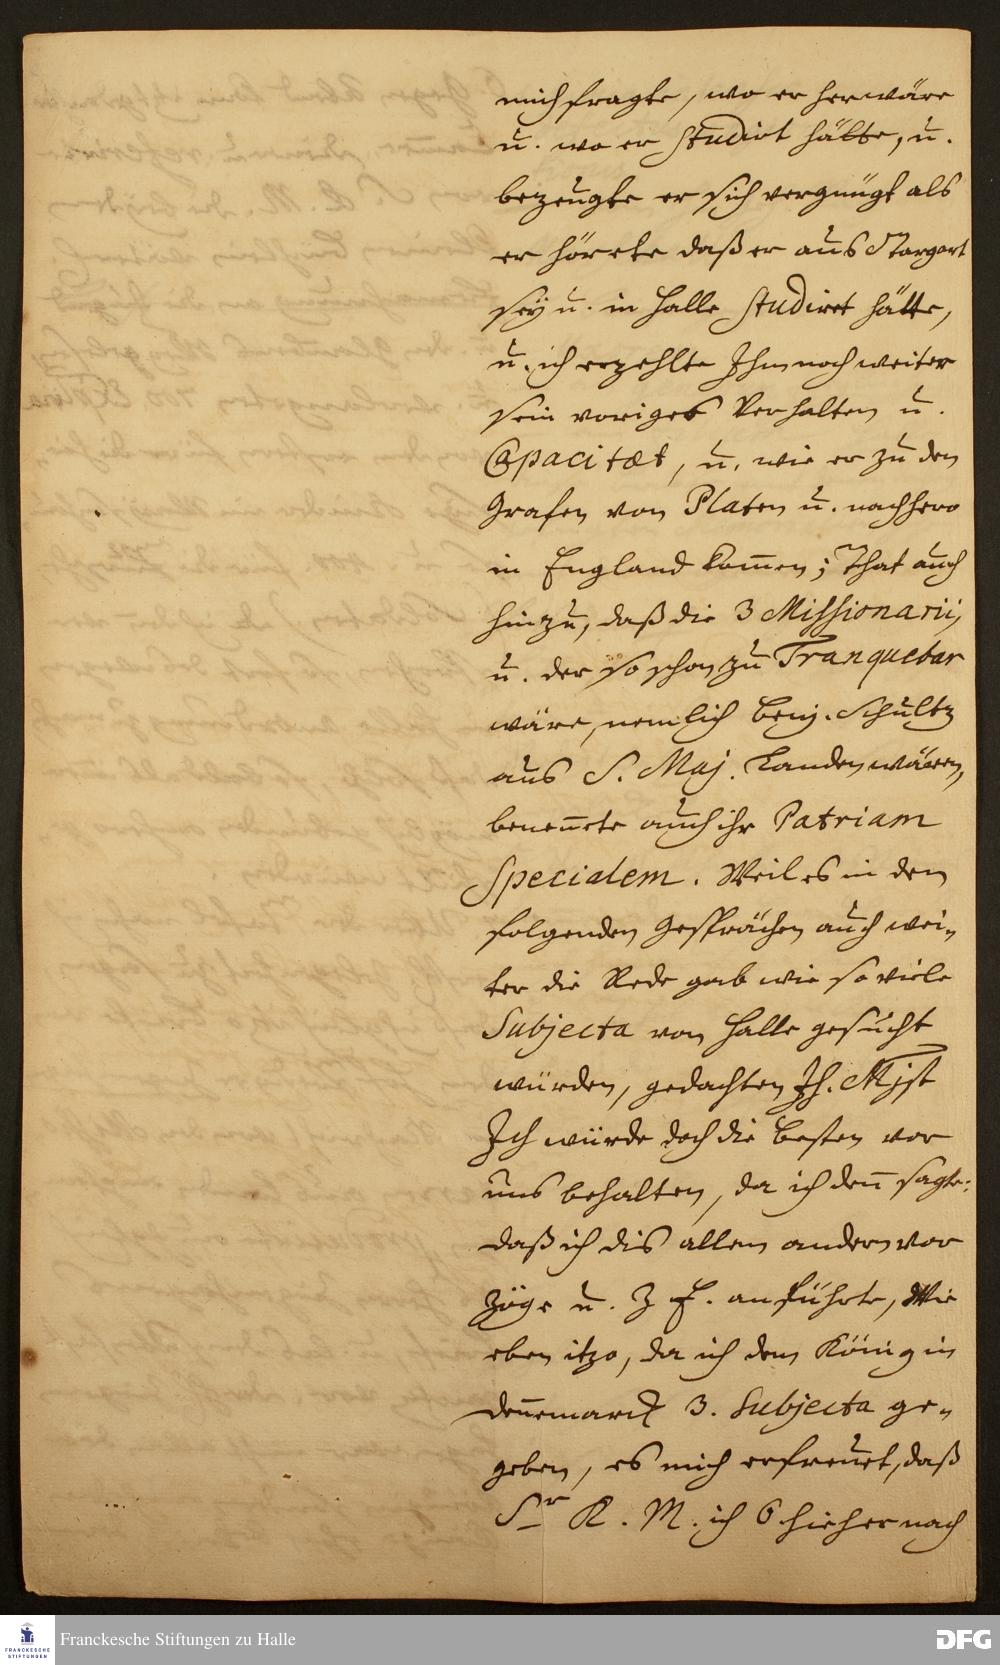 mich fragte, wo er her wäre
u. wo er studirt hätte, u.
bezeugte er sich vergnügt als
er hörete daß er aus Stargart
sey u. in Halle studiret hätte,
u. ich erzehlte Ihm noch weiter
sein voriges Verhalten u.
Capacitæt, u. wie er zu dem
Grafen von Platen u. nachhero
in England kom̄en; That auch
hinzu, daß die 3 Missionarii,
u. der so schon zu Tranquebar
wäre, nemlich Benj. Schultz
aus S. Maj. Landen wären,
benen̄ete auch ihr Patriam
Specialem. Weil es in den
folgenden Gesprächen auch wei-
ter die Rede gab wie so viele
Subjecta von Halle gesucht
würden, gedachten Ih. Mjst
Ich würde doch die besten vor
uns behalten, da ich den̄ sagte:
daß ich dis allem andern vor
zöge u. z. E. anführte, Wie
eben itzo, da ich dem König in
Den̄emarck 3. Subjecta ge-
geben, es mich erfreuet, daß
Sr K. M. ich 6 hieher nach
Franckesche Stiftungen zu Halle
FRANCKESCHE
STIFTUNGEN
DFG